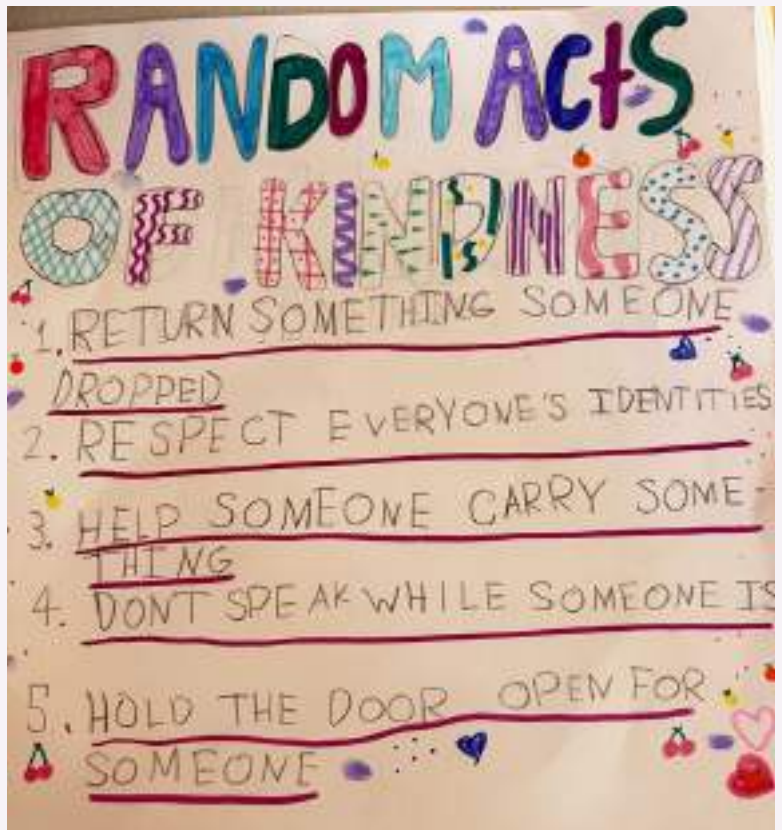 RANDOM ACtS
OF KINDNESS
1. RETURN SOMETHING SOMEONE
DROPPED
2. RESPECT EVERYONE'S IDENTITIES
3. HELP SOMEONE CARRY SOME-
THING
4. DONT SPEAK WHILE SOMEONE IS
5. HOLD THE DOOR OPEN FOR
SOMEONE